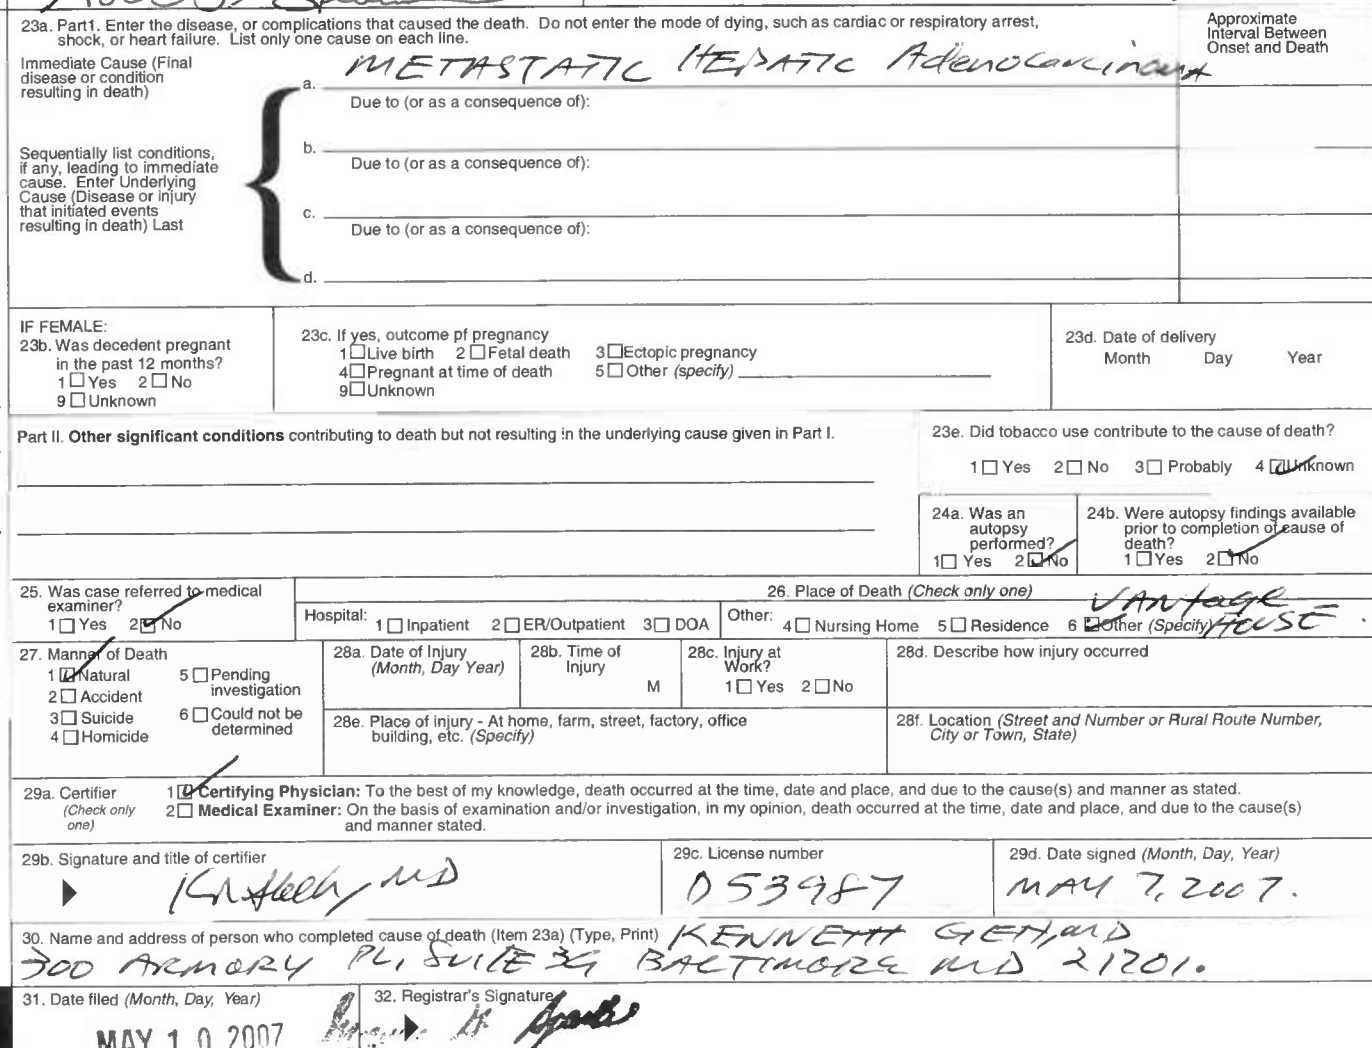 23a. Part1. Enter the disease, or complications that caused the death. Do not enter the mode of dying, such as cardiac or respiratory arrest,
shock, or heart failure. List only one cause on each line.
Approximate
Interval Between
Onset and Death
Immediate Cause (Final
disease or condition
resulting in death)
a. METASTATIC HEPATIC Adenocarcinoma
Due to (or as a consequence of):
b.
Due to (or as a consequence of):
Sequentially list conditions,
if any, leading to immediate
cause. Enter Underlying
Cause (Disease or injury
that initiated events
resulting in death) Last
c.
Due to (or as a consequence of):
d.
IF FEMALE:
23b. Was decedent pregnant
in the past 12 months?
1 ☐ Yes 2 ☐ No
9 ☐ Unknown
23c. If yes, outcome pf pregnancy
1 ☐ Live birth 2 ☐ Fetal death 3 ☐ Ectopic pregnancy
4 ☐ Pregnant at time of death 5 ☐ Other (specify)
9 ☐ Unknown
23d. Date of delivery
Month Day Year
Part II. Other significant conditions contributing to death but not resulting in the underlying cause given in Part I.
23e. Did tobacco use contribute to the cause of death?
1 ☐ Yes 2 ☐ No 3 ☐ Probably 4 ☑ Unknown
24a. Was an
autopsy
performed?
1 ☐ Yes 2 ☑ No
24b. Were autopsy findings available
prior to completion of cause of
death?
1 ☐ Yes 2 ☑ No
25. Was case referred to medical
examiner?
1 ☐ Yes 2 ☑ No
26. Place of Death (Check only one)
Hospital: 1 ☐ Inpatient 2 ☐ ER/Outpatient 3 ☐ DOA Other: 4 ☐ Nursing Home 5 ☐ Residence 6 ☑ Other (Specify) VANTAGE
HOUSE
27. Manner of Death
1 ☑ Natural
2 ☐ Accident
3 ☐ Suicide
4 ☐ Homicide
5 ☐ Pending
investigation
6 ☐ Could not be
determined
28a. Date of Injury
(Month, Day Year)
28b. Time of
Injury
M
28c. Injury at
Work?
1 ☐ Yes 2 ☐ No
28d. Describe how injury occurred
28e. Place of injury - At home, farm, street, factory, office
building, etc. (Specify)
28f. Location (Street and Number or Rural Route Number,
City or Town, State)
29a. Certifier
(Check only
one)
1 ☑ Certifying Physician: To the best of my knowledge, death occurred at the time, date and place, and due to the cause(s) and manner as stated.
2 ☐ Medical Examiner: On the basis of examination and/or investigation, in my opinion, death occurred at the time, date and place, and due to the cause(s)
and manner stated.
29b. Signature and title of certifier
MD
29c. License number
D53987
29d. Date signed (Month, Day, Year)
MAY 7, 2007.
30. Name and address of person who completed cause of death (Item 23a) (Type, Print) KENNETH GEH, MD
300 ARMORY PL, SUITE 3G BALTIMORE MD 21201.
31. Date filed (Month, Day, Year)
MAY 10 2007
32. Registrar's Signature